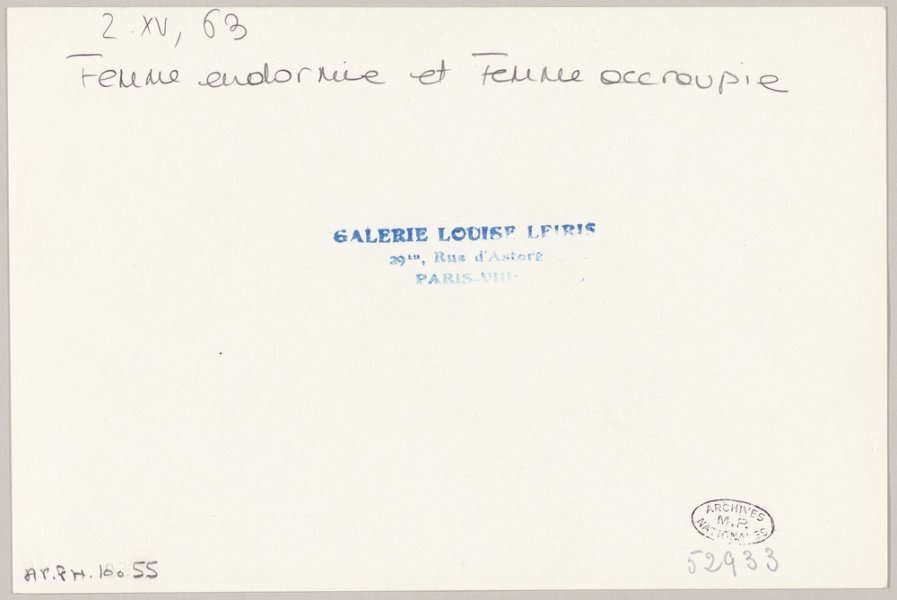 2 XV, 63
Femme endormie et Femme accroupie
GALERIE LOUISE LEIRIS
29bis, Rue d'Astorg
PARIS-VIII
ARCHIVES
M.P.
NATIONALES
52933
AP.PH.18055